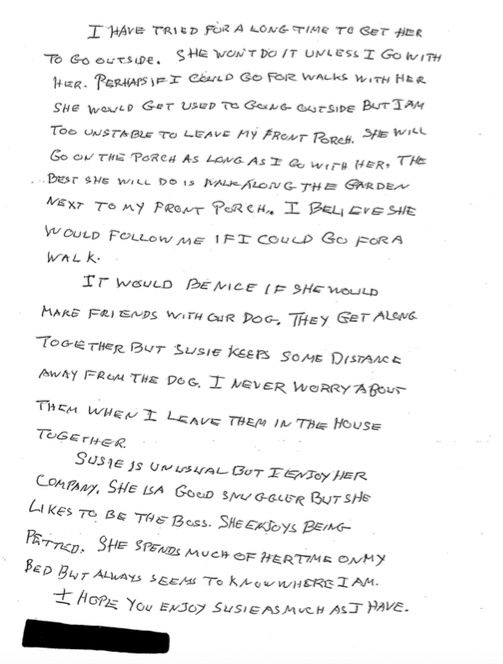 I HAVE TRIED FOR A LONG TIME TO GET HER
TO GO OUTSIDE. SHE WON'T DO IT UNLESS I GO WITH
HER. PERHAPS IF I COULD GO FOR WALKS WITH HER
SHE WOULD GET USED TO GOING OUTSIDE BUT I AM
TOO UNSTABLE TO LEAVE MY FRONT PORCH. SHE WILL
GO ON THE PORCH AS LONG AS I GO WITH HER. THE
BEST SHE WILL DO IS WALK ALONG THE GARDEN
NEXT TO MY FRONT PORCH. I BELIEVE SHE
WOULD FOLLOW ME IF I COULD GO FOR A
WALK.
IT WOULD BE NICE IF SHE WOULD
MAKE FRIENDS WITH OUR DOG. THEY GET ALONG
TOGETHER BUT SUSIE KEEPS SOME DISTANCE
AWAY FROM THE DOG. I NEVER WORRY ABOUT
THEM WHEN I LEAVE THEM IN THE HOUSE
TOGETHER.
SUSIE IS UNUSUAL BUT I ENJOY HER
COMPANY. SHE IS A GOOD SNUGGLER BUT SHE
LIKES TO BE THE BOSS. SHE ENJOYS BEING
PETTED. SHE SPENDS MUCH OF HER TIME ON MY
BED BUT ALWAYS SEEMS TO KNOW WHERE I AM.
I HOPE YOU ENJOY SUSIE AS MUCH AS I HAVE.